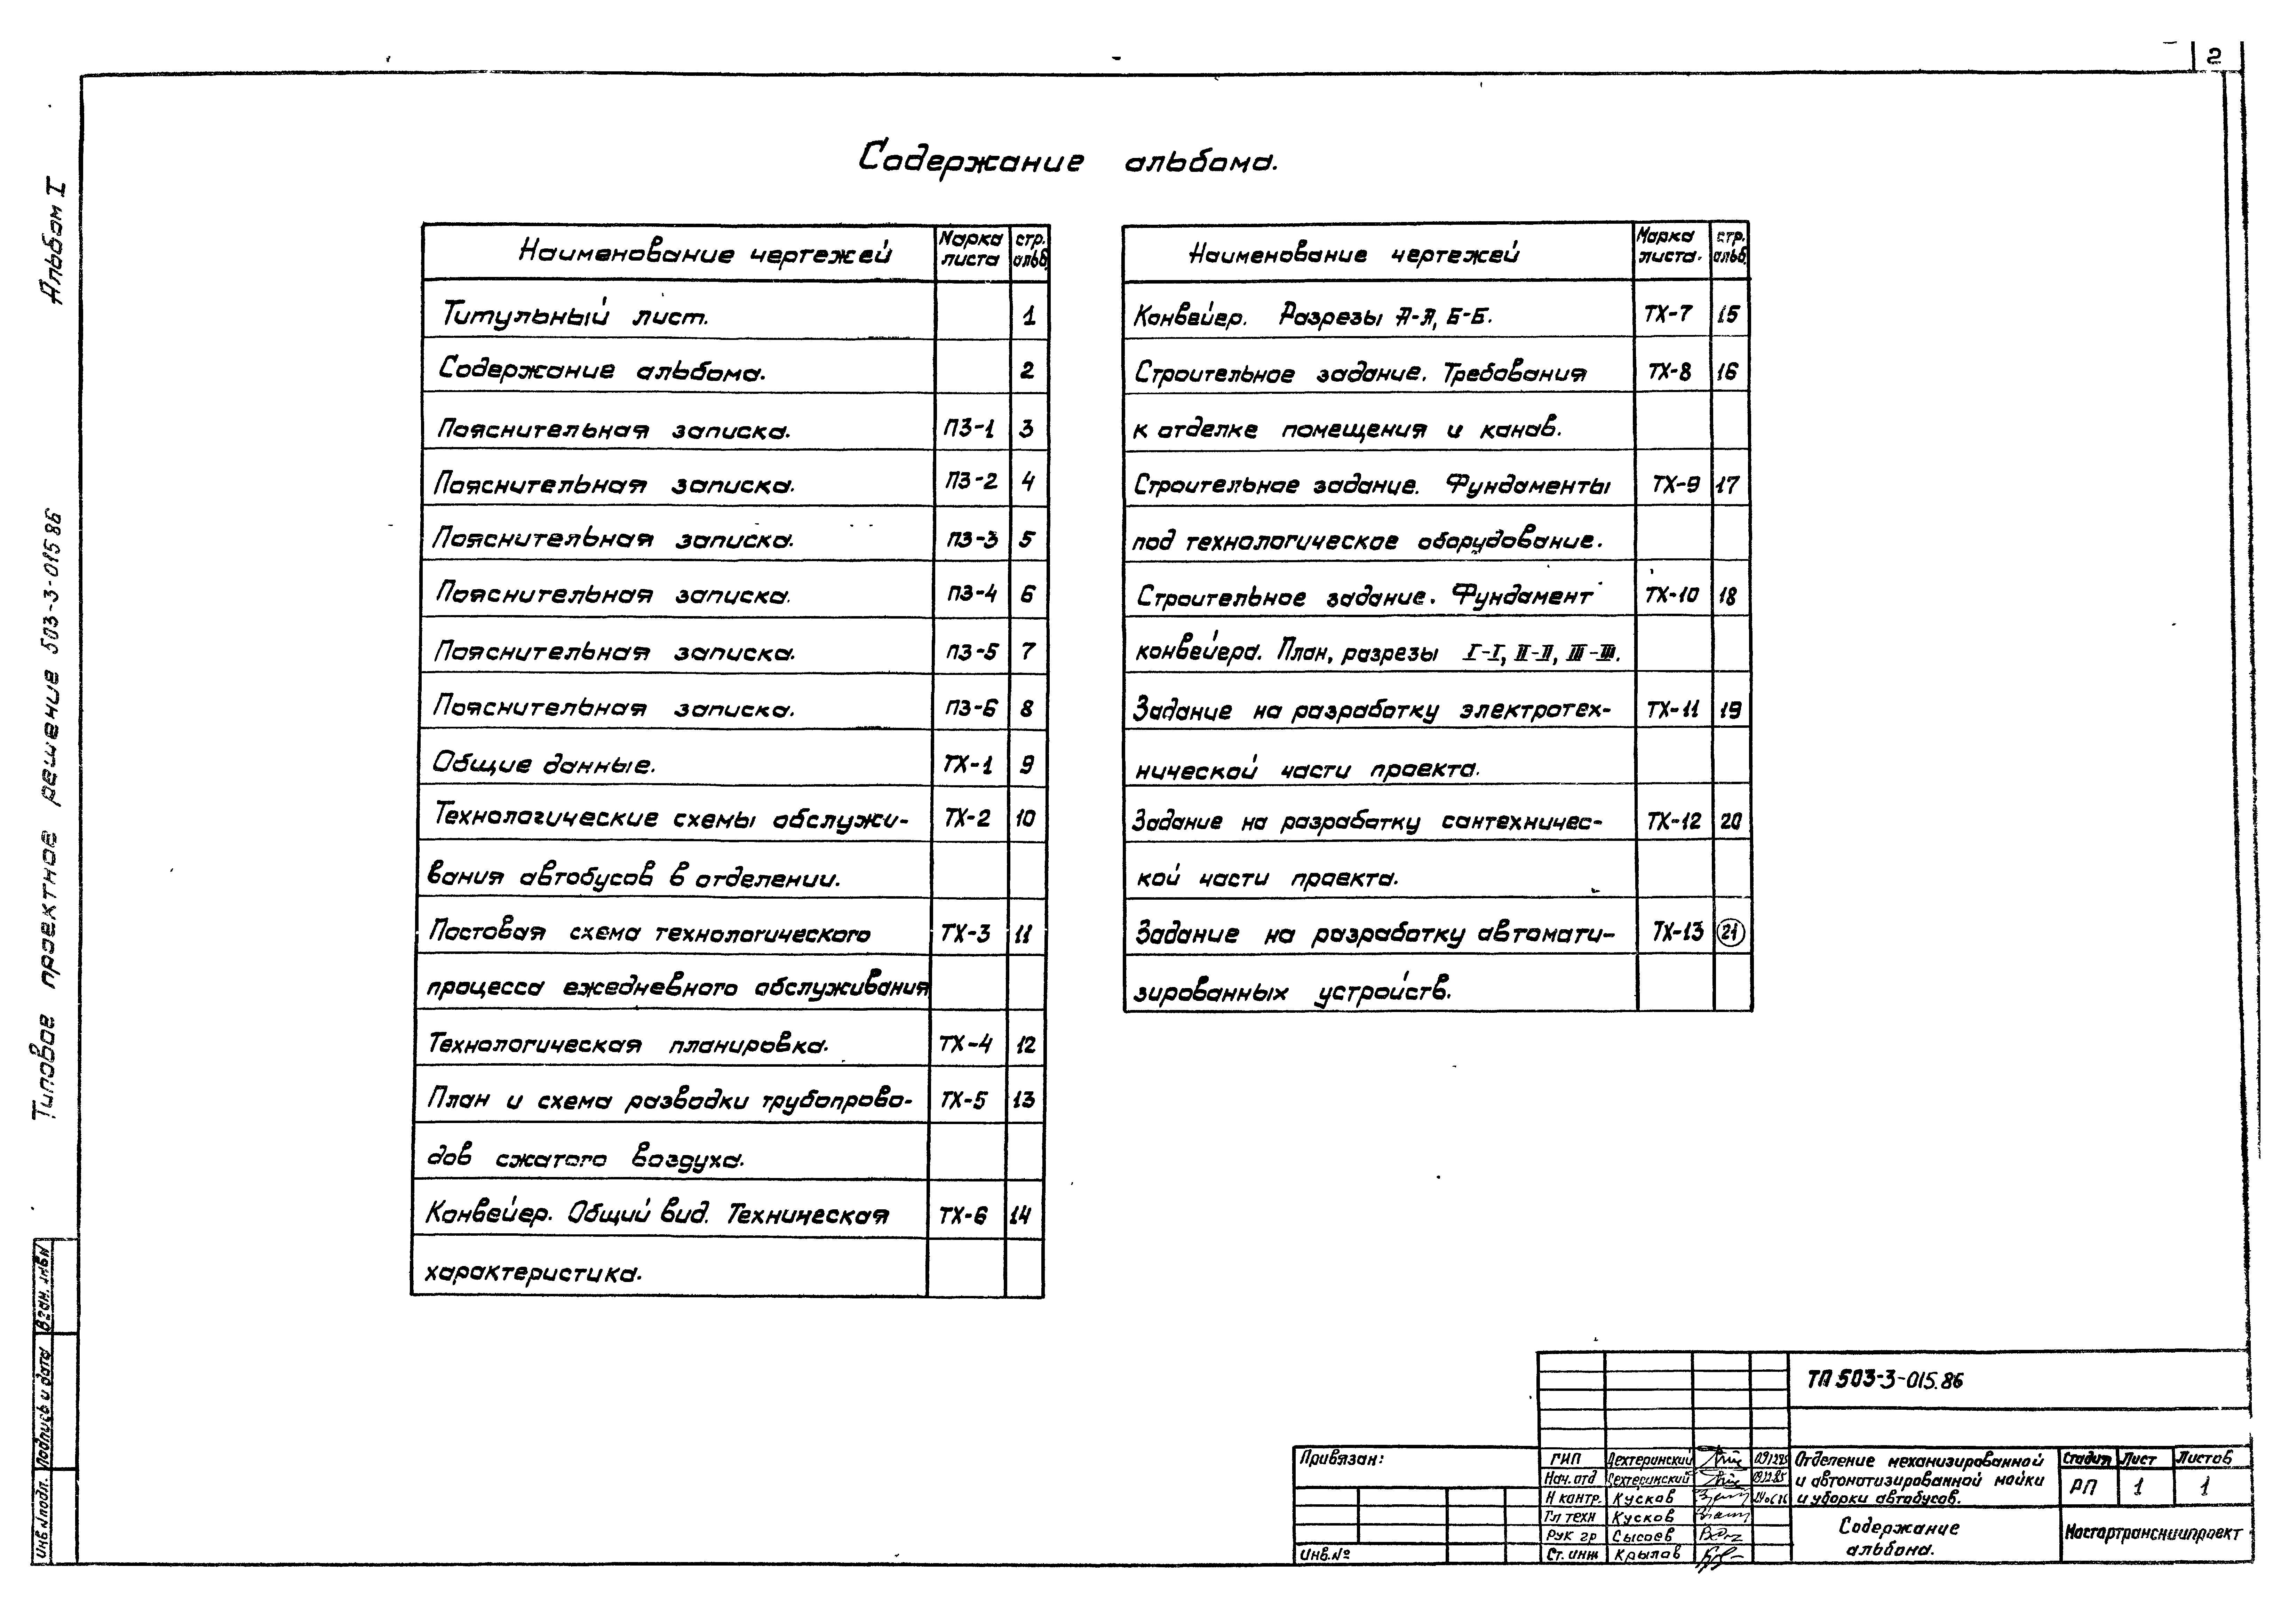 2
Альбом I
Типовое проектное решение 503-3-015.86
Содержание альбома.
Наименование чертежей Марка листа стр. альб.
Титульный лист. 1
Содержание альбома. 2
Пояснительная записка. ПЗ-1 3
Пояснительная записка. ПЗ-2 4
Пояснительная записка. ПЗ-3 5
Пояснительная записка. ПЗ-4 6
Пояснительная записка. ПЗ-5 7
Пояснительная записка. ПЗ-6 8
Общие данные. ТХ-1 9
Технологические схемы обслужи- ТХ-2 10
вания автобусов в отделении.
Постовая схема технологического ТХ-3 11
процесса ежедневного обслуживания
Технологическая планировка. ТХ-4 12
План и схема разводки трубопрово- ТХ-5 13
дов сжатого воздуха.
Конвейер. Общий вид. Техническая ТХ-6 14
характеристика.
Наименование чертежей Марка листа. стр. альб.
Конвейер. Разрезы А-А, Б-Б. ТХ-7 15
Строительное задание. Требования ТХ-8 16
к отделке помещения и канав.
Строительное задание. Фундаменты ТХ-9 17
под технологическое оборудование.
Строительное задание. Фундамент ТХ-10 18
конвейера. План, разрезы I-I, II-II, III-III.
Задание на разработку электротех- ТХ-11 19
нической части проекта.
Задание на разработку сантехничес- ТХ-12 20
кой части проекта.
Задание на разработку автомати- ТХ-13 21
зированных устройств.
Взам. инв.N
Подпись и дата
Инв.N подл.
ТП 503-3-015.86
Привязан:
Инв.№
ГИП Дехтеринский 091285
Нач. отд Дехтеринский 091285
Н контр. Кусков
Гл техн Кусков
Рук гр Сысоев
Ст. инж Крылов
Отделение механизированной
и автоматизированной мойки
и уборки автобусов.
Стадия Лист Листов
РП 1 1
Содержание
альбома.
Мосгортрансниипроект